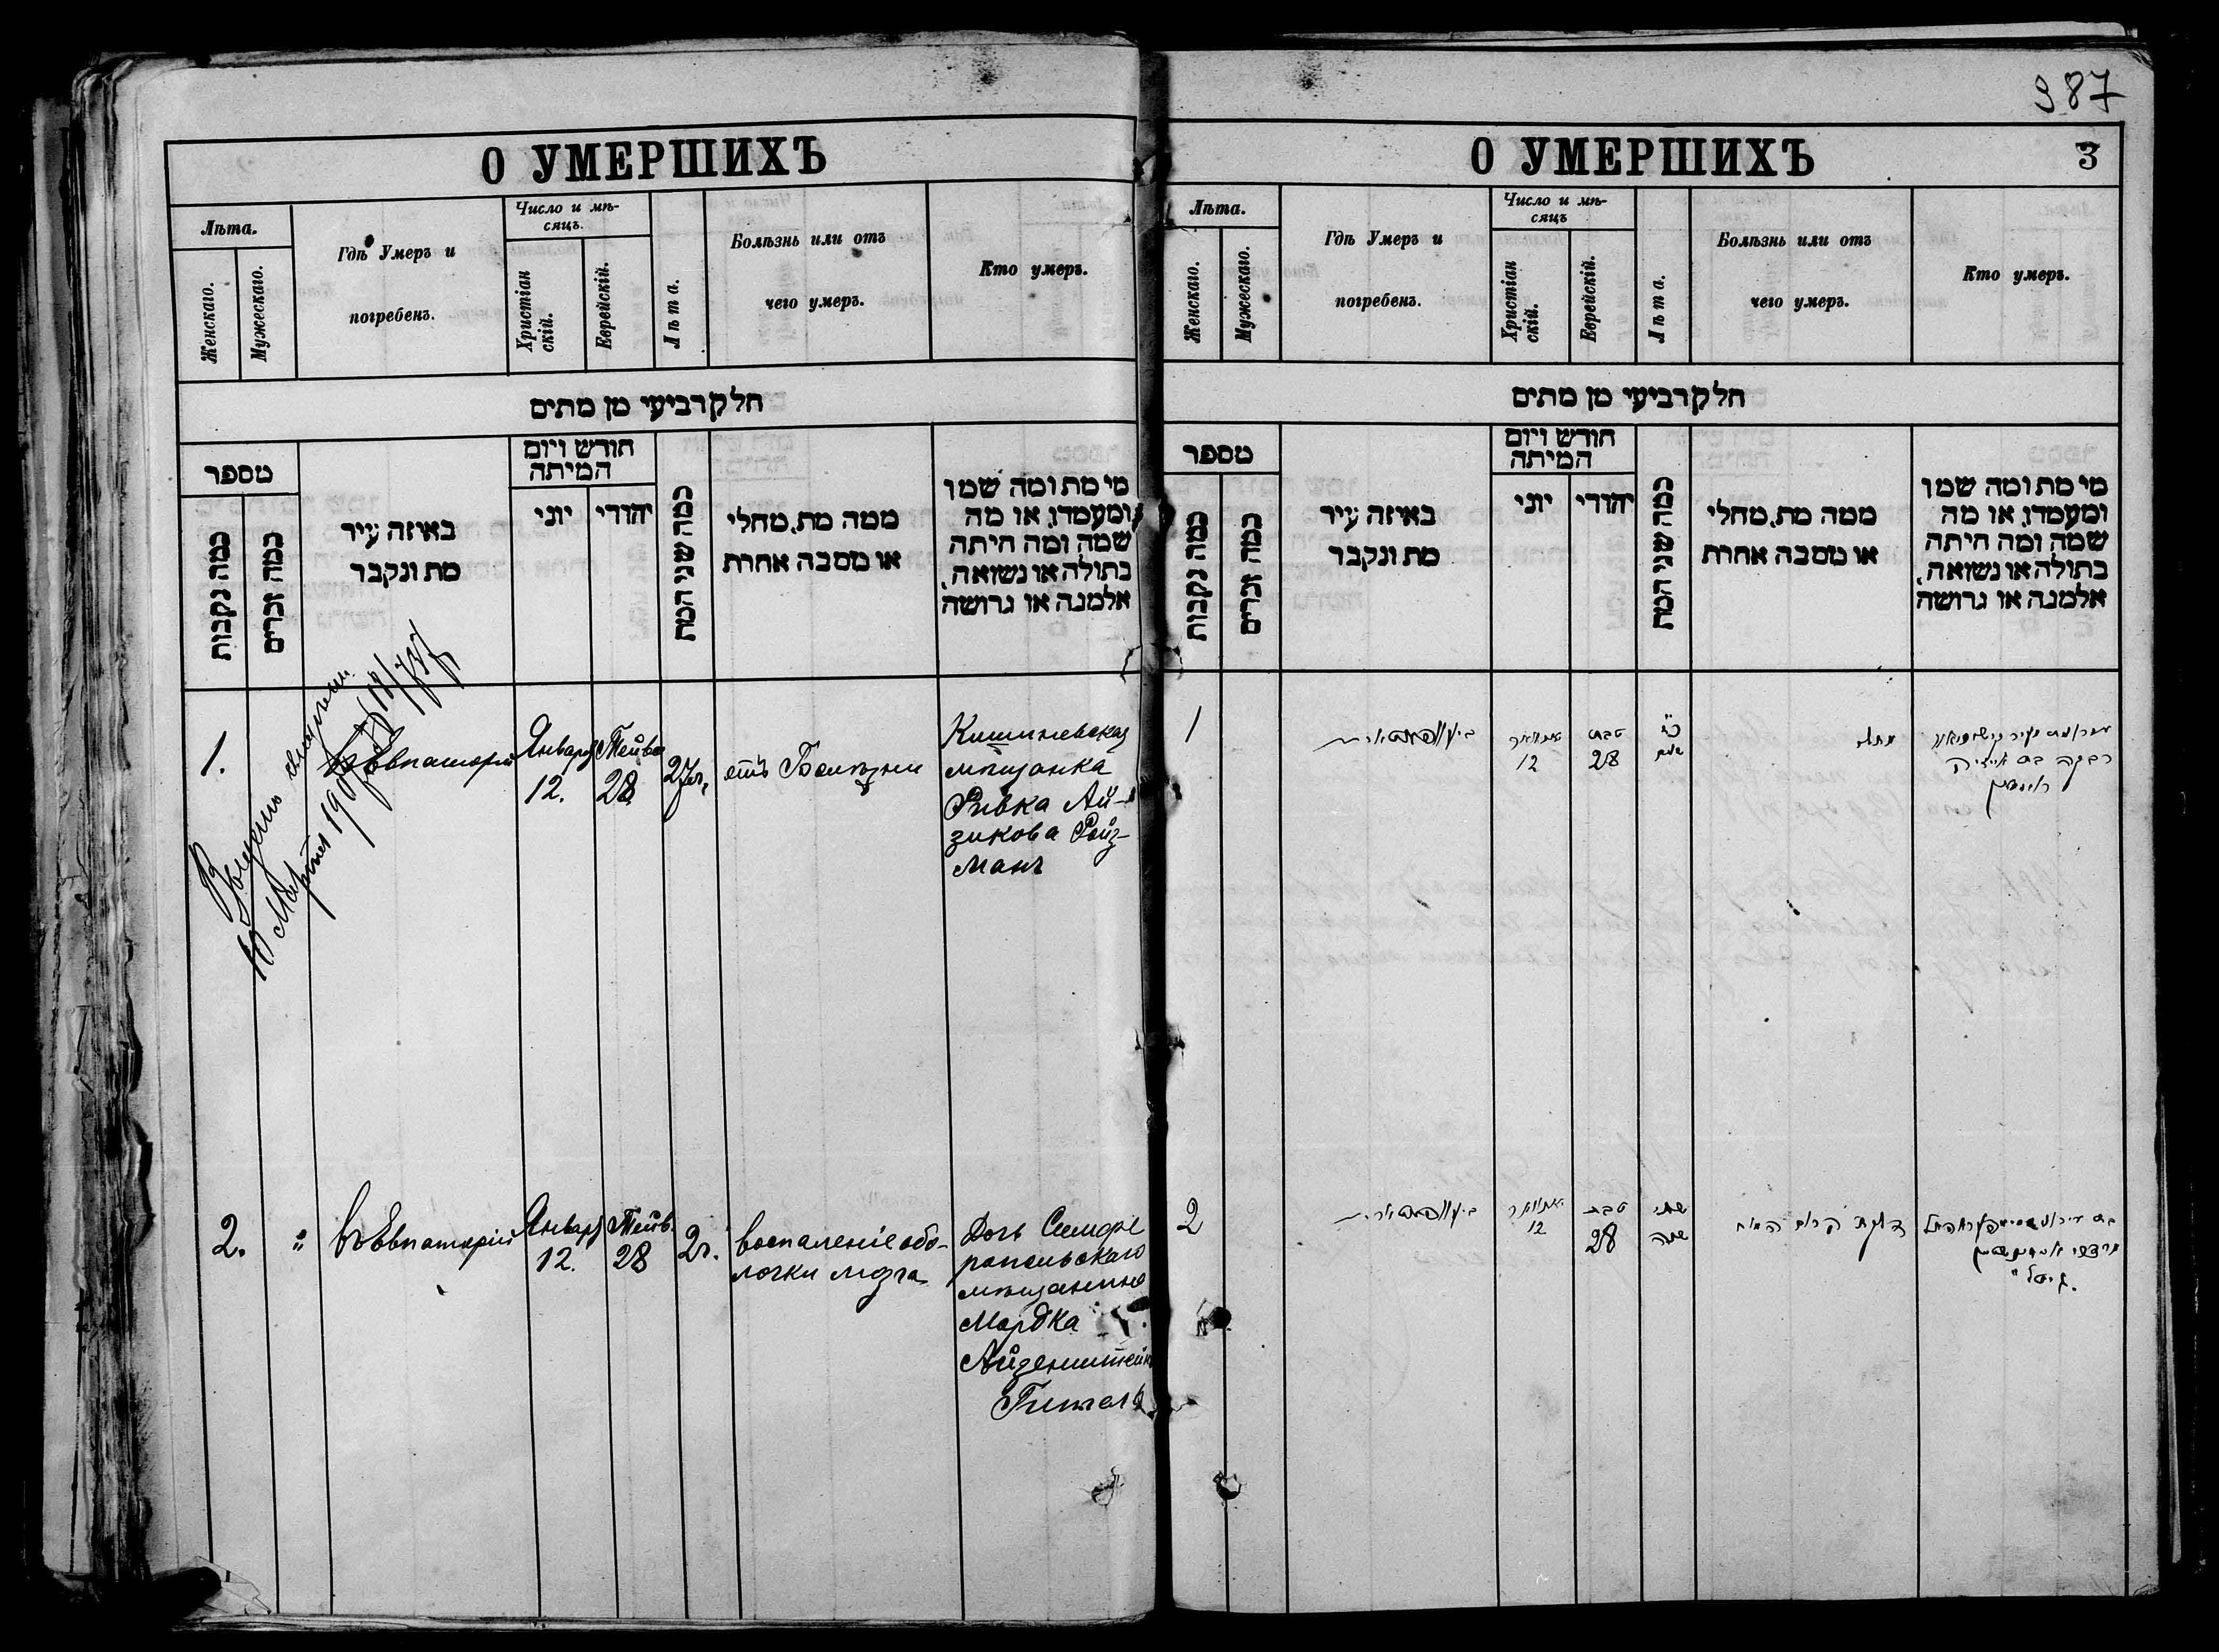 387
О УМЕРШИХЪ
Лѣта.
Женскаго.
Мужескаго.
Гдѣ Умеръ и
погребенъ.
Число и мѣ-
сяцъ.
Христіан
скій.
Еврейскій.
Лѣта.
Болѣзнь или отъ
чего умеръ.
Кто умеръ.
חלק רביעי מן מתים
מספר
כמה נקבות
כמה זכרים
באיזה עיר
מת ונקבר
חודש ויום
המיתה
יוני
יהודי
כמה שני המת
ממה מת, מחלי
או מסבה אחרת
מי מת ומה שמו
ומעמדו, או מה
שמה ומה היתה
בתולה או נשואה,
אלמנה או גרושה
Марта 190
1.
въ Евпаторіи
Января
12.
Тейве
28
27 л.
отъ Болѣзни
Кишиневская
мѣщанка
Ривка Ай-
зикова Ройз-
манъ
2.
"
въ Евпаторіи
Января
12.
Тейв.
28
2 г.
воспаленіе обо-
лочки мозга
Дочь Симфе
ропольскаго
мѣщанина
Мордка
Айзенштейн
Гитель
О УМЕРШИХЪ
3
Лѣта.
Женскаго.
Мужескаго.
Гдѣ Умеръ и
погребенъ.
Число и мѣ-
сяцъ
Христіан
скій.
Еврейскій.
Лѣта.
Болѣзнь или отъ
чего умеръ.
Кто умеръ.
חלק רביעי מן מתים
מספר
כמה נקבות
כמה זכרים
באיזה עיר
מת ונקבר
חודש ויום
המיתה
יוני
יהודי
כמה שני המת
ממה מת, מחלי
או מסבה אחרת
מי מת ומה שמו
ומעמדו, או מה
שמה ומה היתה
בתולה או נשואה,
אלמנה או גרושה
1
יאנואר
12
טבת
28
רבקה בת אייזיק
רויזמאן
2
יאנואר
12
טבת
28
שתי
שנה
דלקת קרום המוח